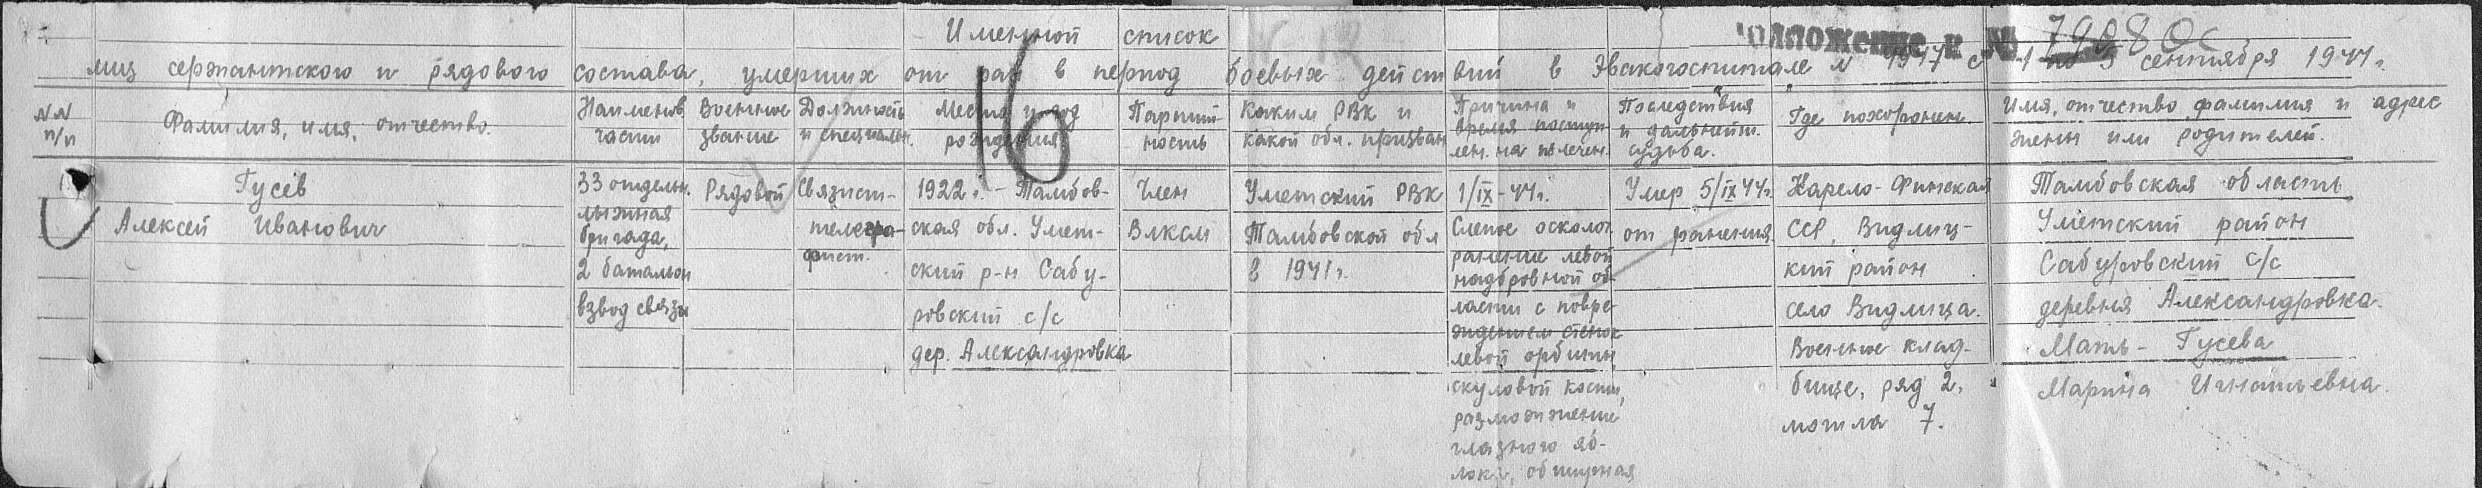 Именной список
приложение к № 79080с
16
лиц сержантского и рядового состава, умерших от ран в период боевых действий в Эвакогоспитале № 1917 с 1 по 5 сентября 1944 г.
№№ п/п
Фамилия, имя, отчество.
Наименов. части
Военное звание
Должность и специальн.
Место и год рождения
Партийность
Каким РВК и какой обл. призван
Причина и время поступлен. на излечен.
Последствия и дальнейш. судьба.
Где похоронен
Имя, отчество фамилия и адрес жены или родителей.
Гусев
Алексей Иванович
33 отдельн.
лыжная
бригада,
2 батальон
взвод связи
Рядовой
Связист-
телегра-
фист.
1922 г. - Тамбов-
ская обл. Умет-
ский р-н Сабу-
ровский с/с
дер. Александровка
Член
ВЛКСМ
Уметский РВК
Тамбовской обл
в 1941 г.
1/IX-44г.
Слепое осколоч.
ранение левой
надбровной об-
ласти с повре-
ждением стенок
левой орбиты,
скуловой кости,
размозжение
глазного яб-
лока, обширная
Умер 5/IX 44г.
от ранения
Карело-Финская
ССР, Видлиц-
кий район
село Видлица.
Военное клад-
бище, ряд 2,
могила 7.
Тамбовская область
Уметский район
Сабуровский с/с
деревня Александровка.
Мать - Гусева
Марина Игнатьевна.